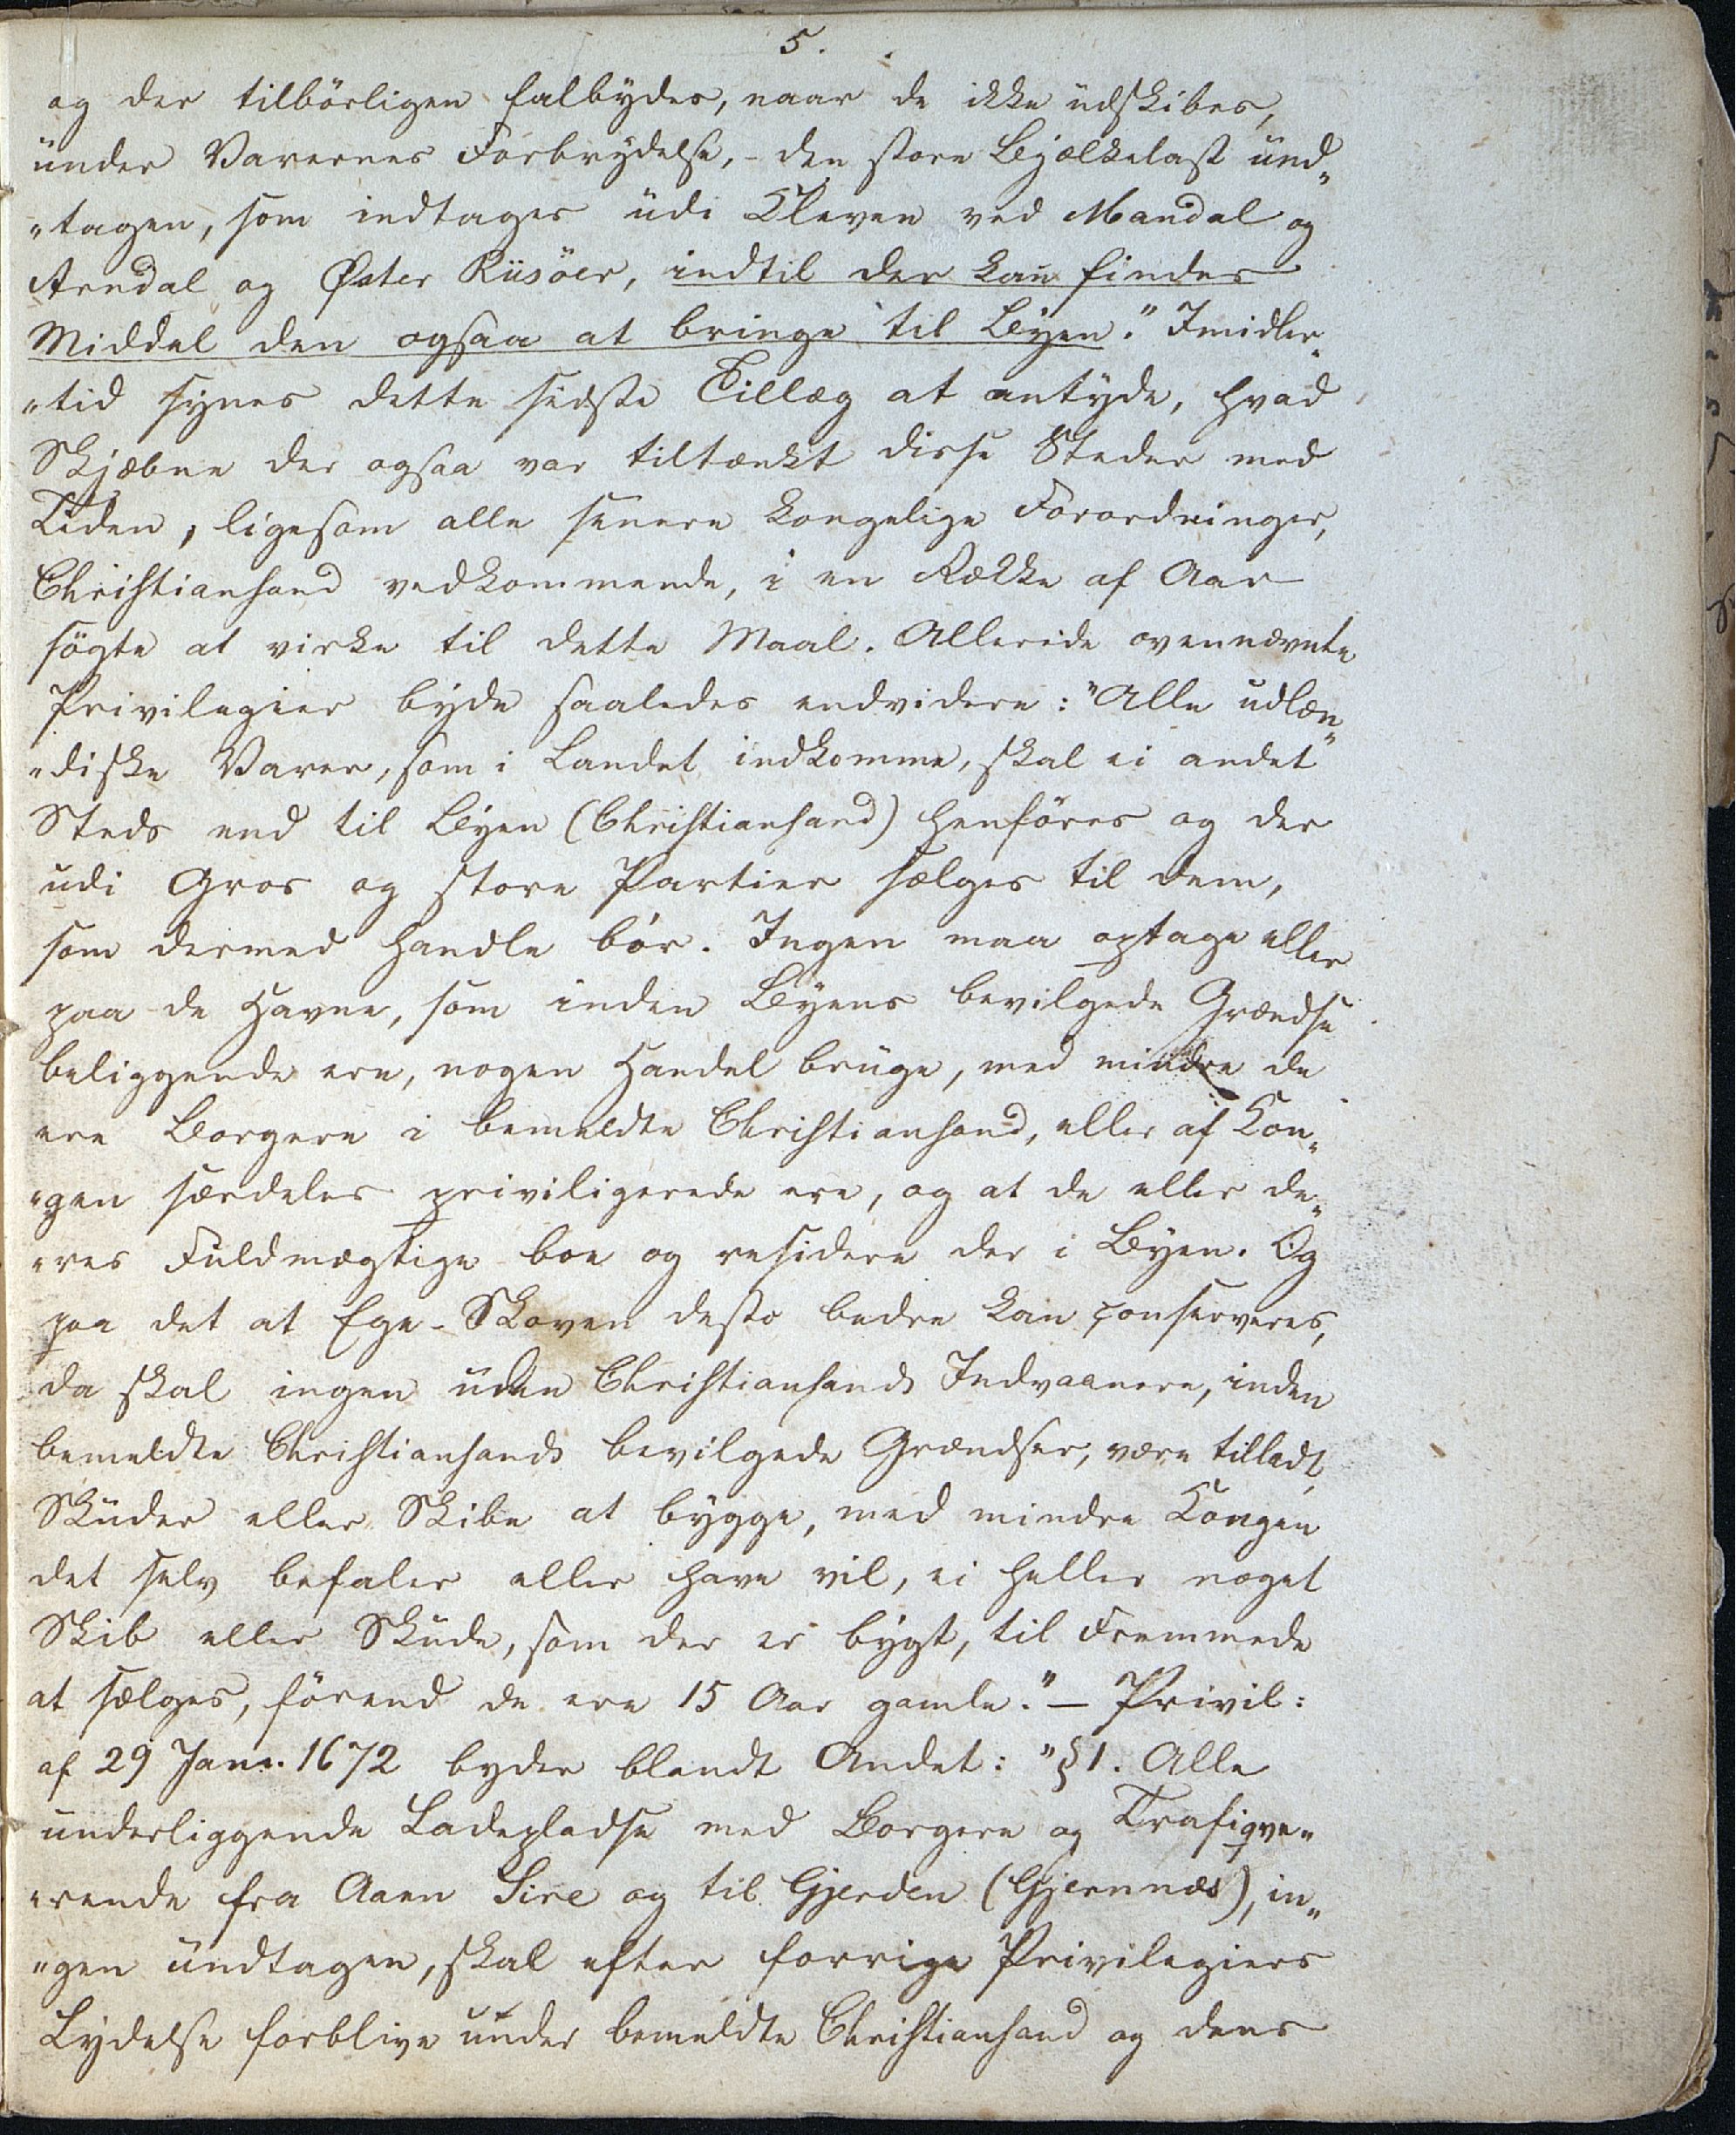 5.
og der tilbörligen falbydes, naar de ikke udskibes,
under Varernes Forbrydelse, - den store Bjælkelast und„
„tagen, som indtages udi Kleven ved Mandal og
Arndal og Øster Riisöer, indtil der kan findes
Middel den ogsaa at bringe til Byen." Imidler„
„tid synes dette sidste Tillæg at antyde, hvad
Skjæbne der ogsaa var tiltænkt disse Steder med
Tiden, ligesom alle senere kongelige Forordninger,
Christiansand vedkommende, i en Række af Aar
sögte at virke til dette Maal. Allerede ovennævnte
Privilegier byde saaledes endvidere: "Alle udlæn„
„diske Varer, som i Landet indkomme, skal ei andet
Steds end til Byen (Christiansand) henföres og der
udi Gros og store Partier sælges til dem,
som dermed handle bör. Ingen maa optage eller
paa de Havne, som inden Byens bevilgede Grændse
beliggende ere, nogen Handel bruge, med mindre de
ere Borgere i bemeldte Christiansand, eller af Kon„
„gen særdeles priviligerede ere, og at de eller de„
„res Fuldmægtige boe og residere der i Byen. Og
paa det at Ege-Skoven desto bedre kan conserveres,
da skal ingen uden Christiansands Indvaanere, inden
bemeldte Christiansands bevilgede Grændser, være tilladt,
Skuder eller Skibe at bygge, med mindre Kongen
det selv befaler eller have vil, ei heller noget
Skib eller Skude, som der er bygt, til Fremmede
at sælges, förend de ere 15 Aar gamle." — Privil:
af 29 Janr. 1672 byder blandt Andet: "§ 1. Alle
underliggende Ladepladse med Borgere og Trafiqve„
„rende fra Aaen Sire og til Gjerden (Gjernnæs), in„
„gen undtagen, skal efter forrige Privilegiers
Lydelse forblive under bemeldte Christiansand og dens